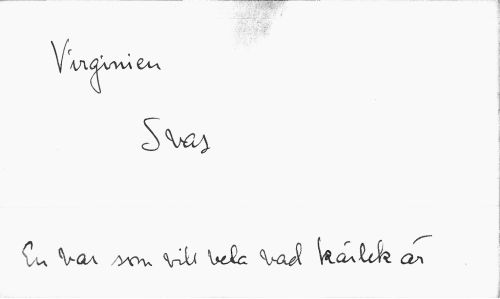 Virginien
Svas
En var som vill veta vad kärlek är